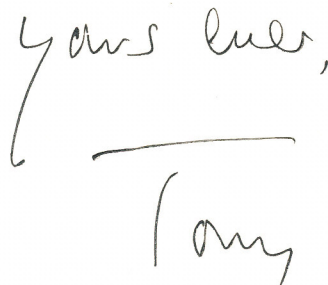 Yours ever,
Tony